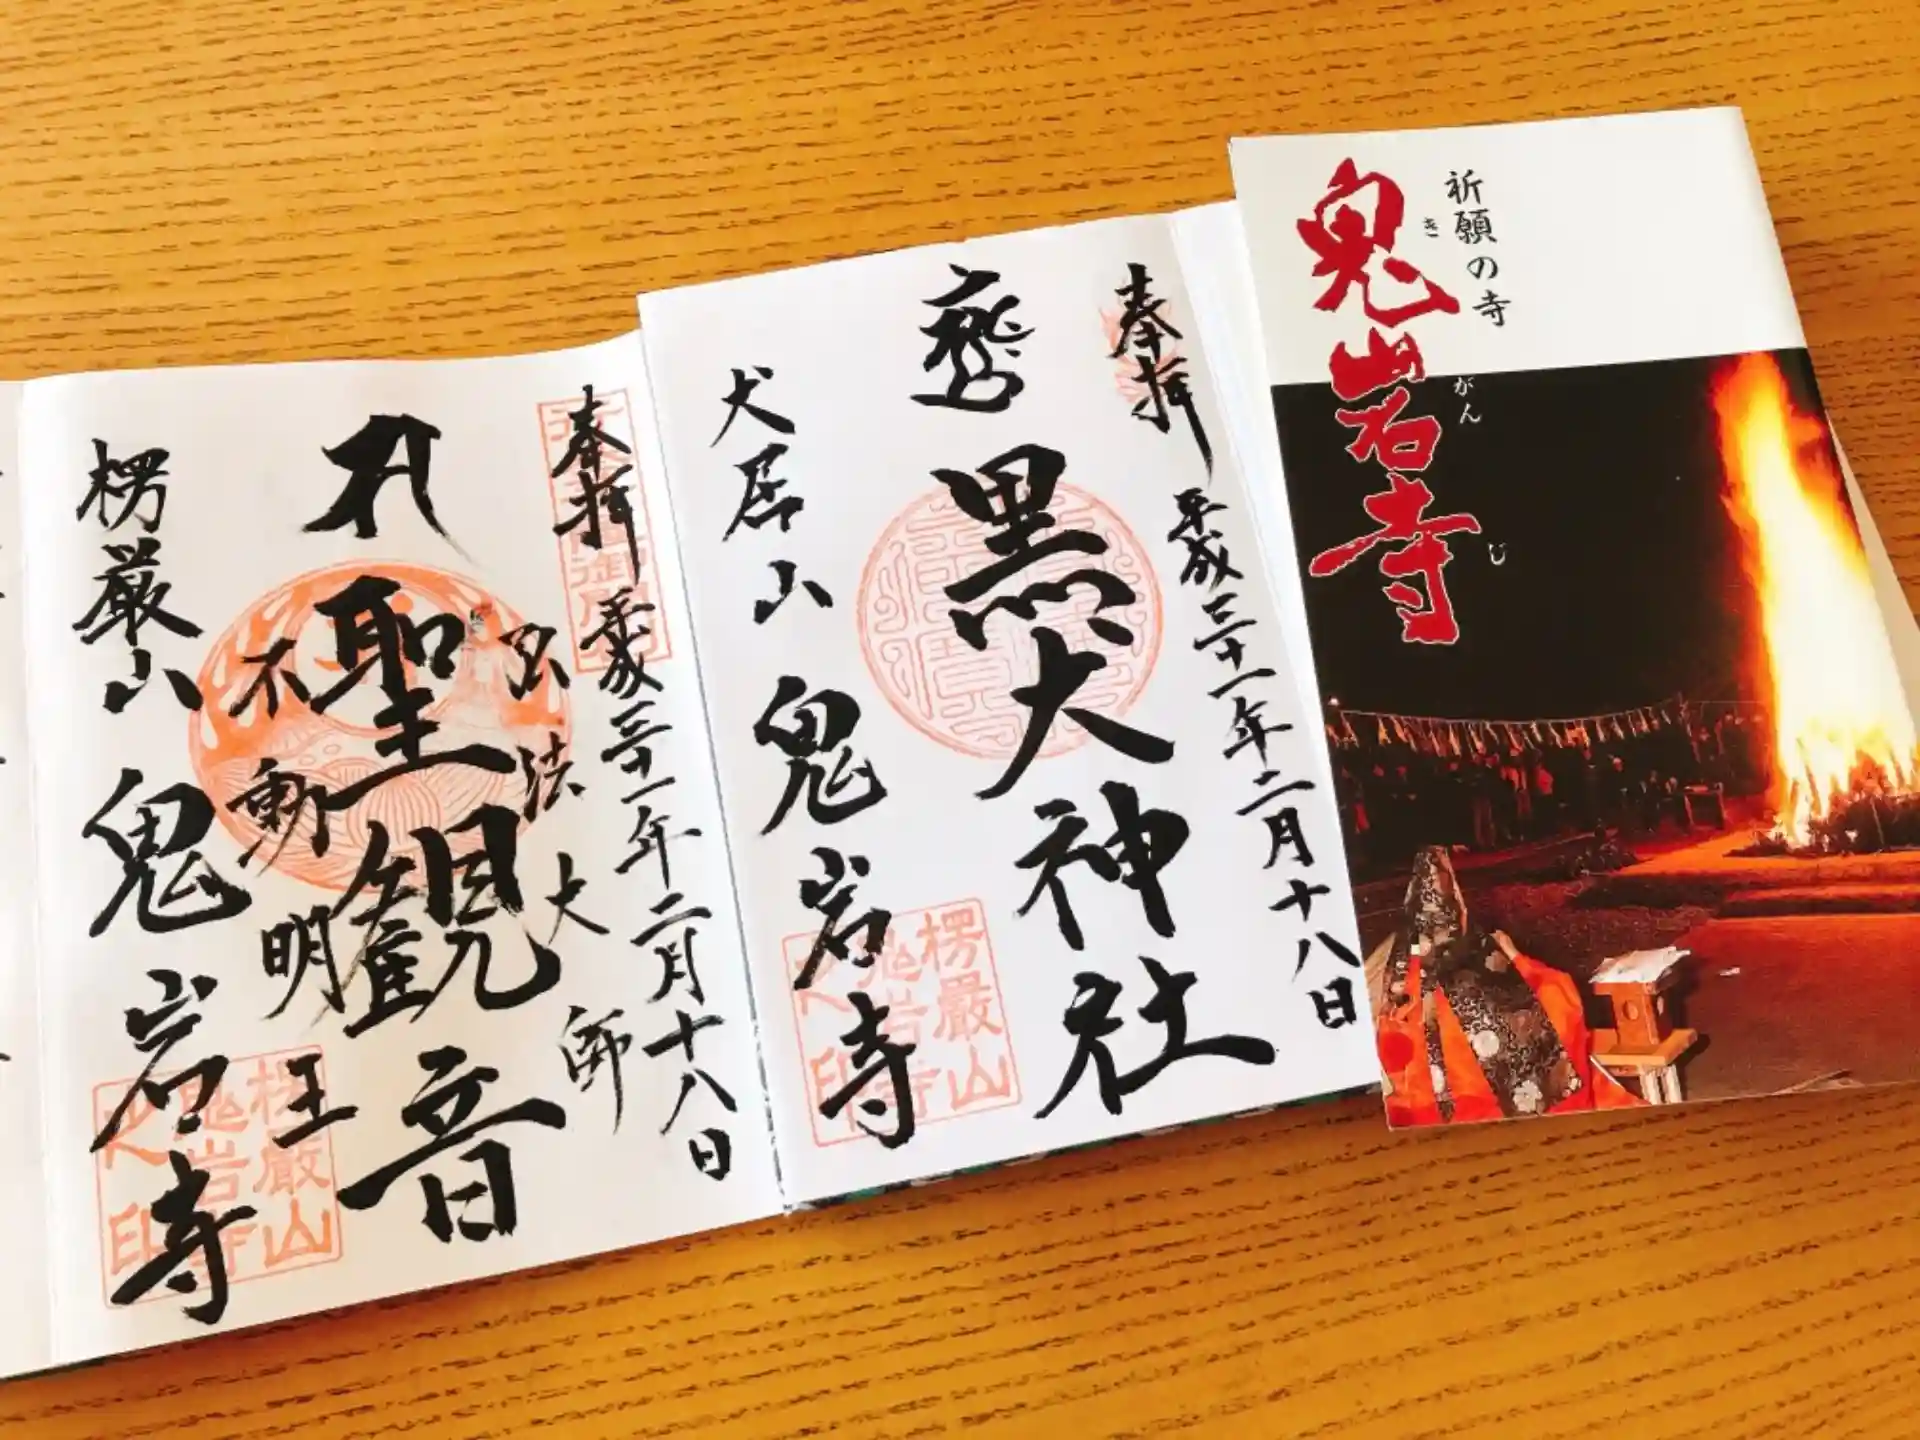 祈願の寺
鬼岩寺
きがんじ
奉拝 平成三十一年二月十八日
黒犬神社
犬居山 鬼岩寺
楞嚴山
鬼岩寺
之印
奉拝 平成三十一年二月十八日
弘法大師
聖観音
不動明王
楞厳山 鬼岩寺
楞嚴山
鬼岩寺
之印